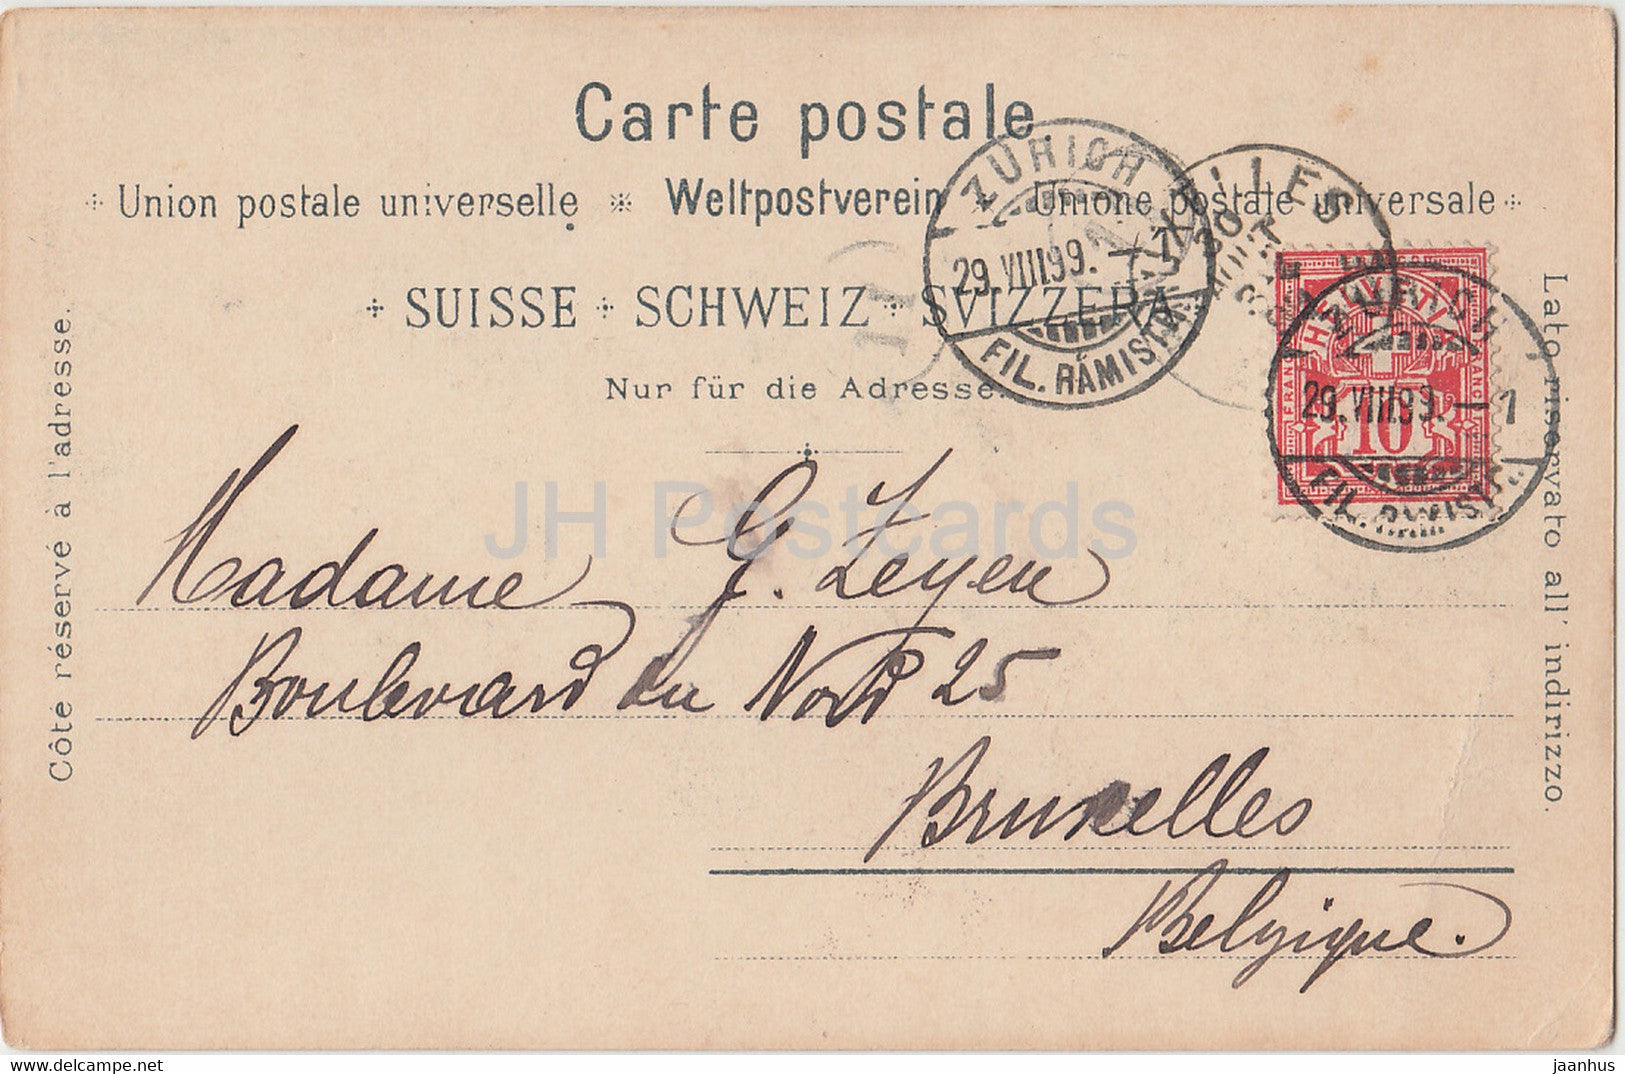 Carte postale.
Union postale universelle * Weltpostverein * Unione postale universale
SUISSE + SCHWEIZ + SVIZZERA
Nur für die Adresse.
Côté réservé à l'adresse.
Lato riservato all' indirizzo.
ZÜRICH
29.VIII.99. – 1
FIL. RÄMISTR.
HELVETIA
FRANCO
FRANCO
10
29.VIII.99. – 1
JH Postcards
Madame G. Zeyen
Boulevard du Nord 25
Bruxelles
Belgique.
delcampe.net
jaanhus